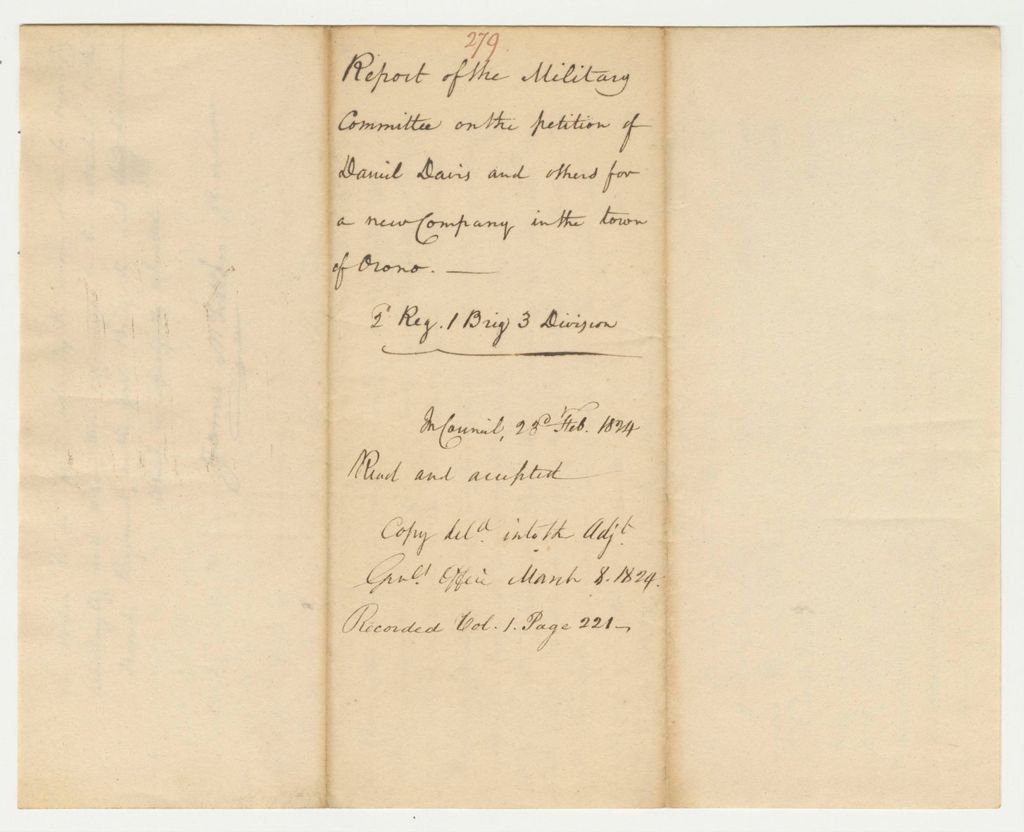 279.
Report of the Military
Committee on the petition of
Daniel Davis and others for
a new Company in the town
of Orono. —
2d Reg. 1 Brig 3 Division
In Council, 23d Feb. 1824
Read and accepted
Copy deld. into the Adjt.
Genls. Office March 8. 1824.
Recorded Vol. 1. Page 221 —